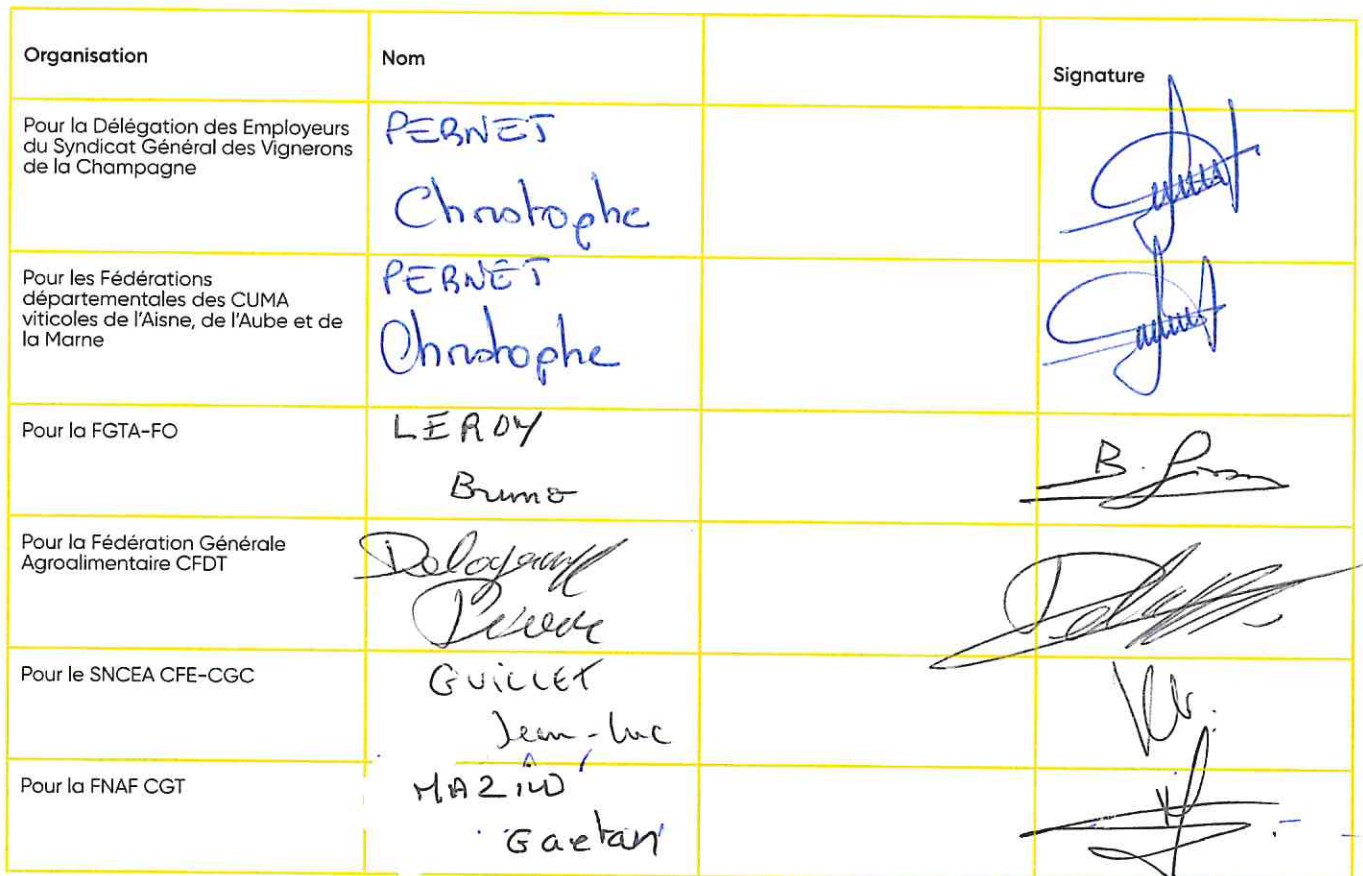 Organisation
Nom
Signature
Pour la Délégation des Employeurs
du Syndicat Général des Vignerons
de la Champagne
PERNET
Christophe
Pour les Fédérations
départementales des CUMA
viticoles de l'Aisne, de l'Aube et de
la Marne
PERNET
Christophe
Pour la FGTA-FO
LEROY
Bruno
B.
Pour la Fédération Générale
Agroalimentaire CFDT
Pour le SNCEA CFE-CGC
GUILLET
Jean-Luc
Pour la FNAF CGT
Gaetan